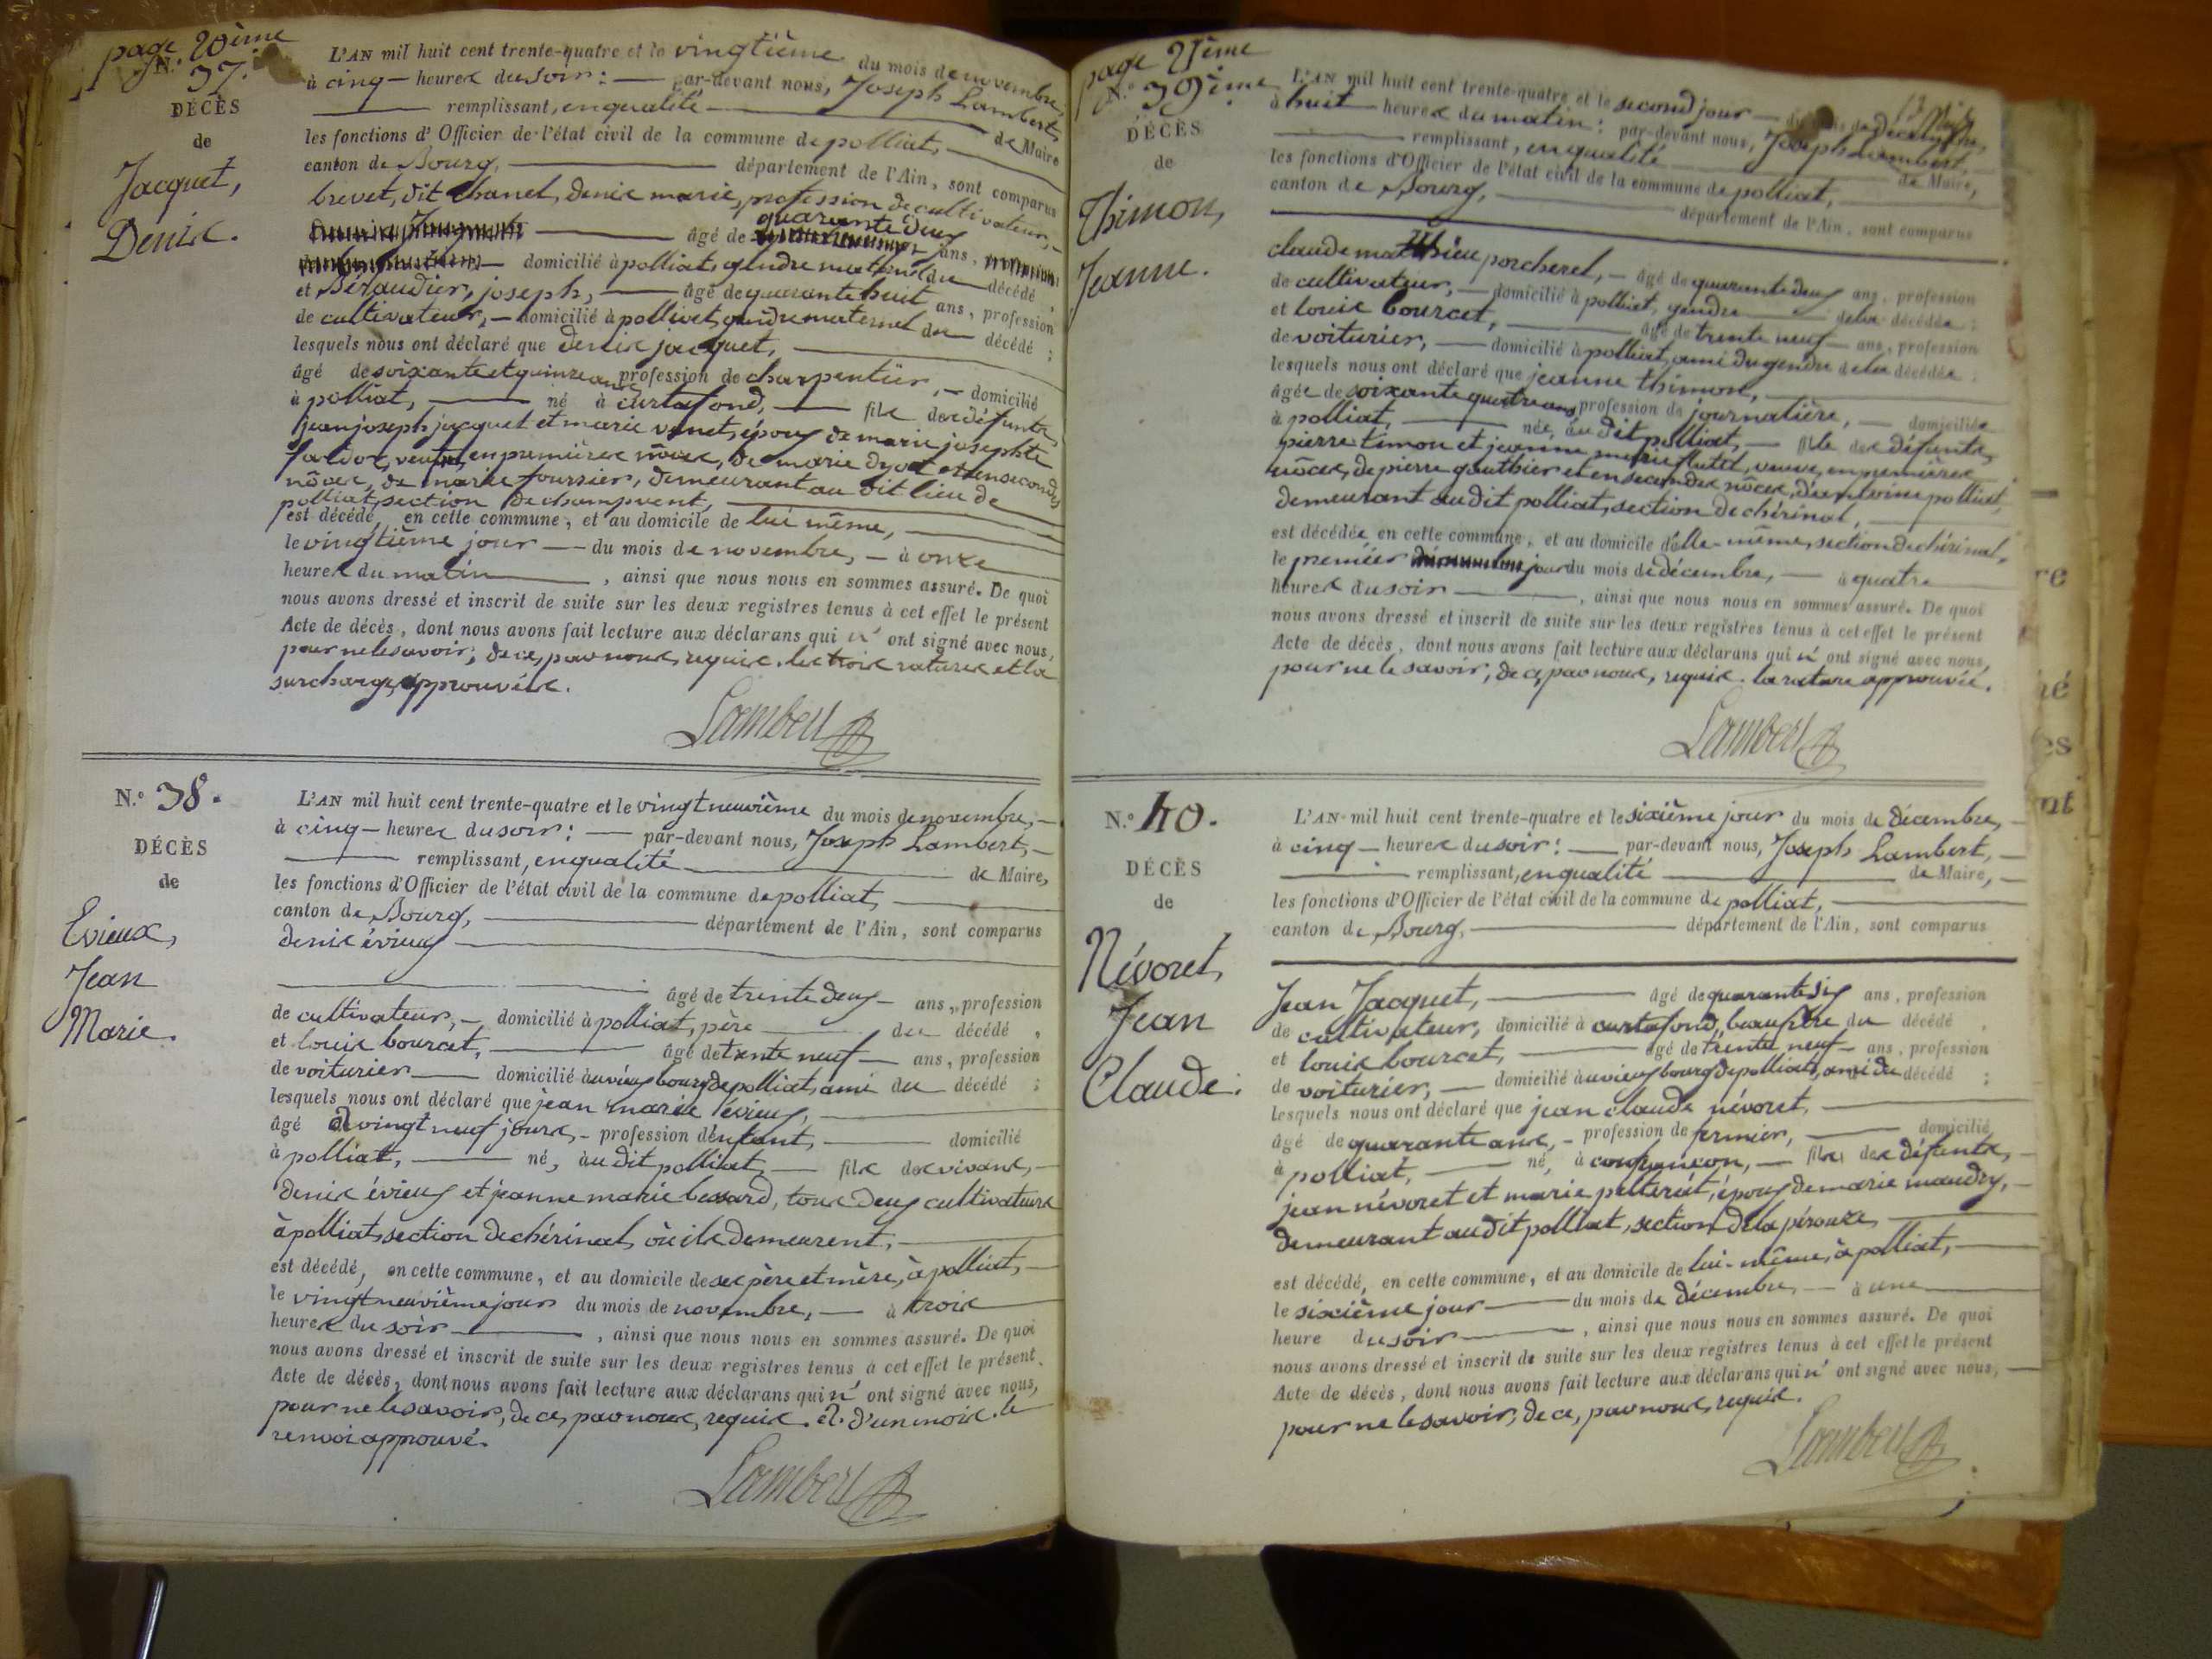 page 20ème
N.° 37.
DÉCÈS
de
Jacquet,
Denis.
L'AN mil huit cent trente-quatre et le vingtième du mois de novembre,
à cinq — heures du soir : — par-devant nous, Joseph Lambert,
remplissant, en qualité — de Maire
les fonctions d'Officier de l'état civil de la commune de polliat,
canton de Bourg, — département de l'Ain, sont comparus
brevet, dit chanel, denis marie, profession de cultivateur, —
quarante deux
âgé de ans,
domicilié à polliat, gendre maternel du décédé
et Béraudier, joseph, — âgé de quarante huit ans, profession
de cultivateur, — domicilié à polliat, gendre maternel du décédé ;
lesquels nous ont déclaré que denis jacquet, —
âgé de soixante et quinze ans profession de charpentier, — domicilié
à polliat, — né à curtafond, — fils des défunts
jean joseph jacquet et marie vanet, époux de marie josephte
veuf, en premières nôces, de marie et en secondes
nôces, de marie foursier, demeurant au dit lieu de
polliat, section de champvent, —
est décédé, en cette commune, et au domicile de lui même, —
le vingtième jour — du mois de novembre, — à onze
heures du matin —, ainsi que nous nous en sommes assuré. De quoi
nous avons dressé et inscrit de suite sur les deux registres tenus à cet effet le présent
Acte de décès, dont nous avons fait lecture aux déclarans qui n' ont signé avec nous,
pour ne le savoir, de ce, par nous, requis. les trois ratures et la
surcharge, approuvées.
Lambert
N.° 38.
DÉCÈS
de
Evieux,
Jean
Marie.
L'AN mil huit cent trente-quatre et le vingt neuvième du mois de novembre, —
à cinq — heures du soir : — par-devant nous, Joseph Lambert, —
remplissant, en qualité — de Maire,
les fonctions d'Officier de l'état civil de la commune de polliat, —
canton de Bourg, — département de l'Ain, sont comparus
denis évieux —
âgé de trente deux — ans, profession
de cultivateur, — domicilié à polliat, père — du décédé ,
et louis bourcet, — âgé de trente neuf — ans, profession
de voiturier — domicilié au vieux bourg de polliat, ami du décédé ;
lesquels nous ont déclaré que jean marie évieux, —
âgé d vingt neuf jours, — profession d'enfant, — domicilié
à polliat, — né, au dit polliat, — fils des vivans, —
denis évieux et jeanne marie bessard, tous deux cultivateurs
à polliat, section de chérinal, où ils demeurent, —
est décédé, en cette commune, et au domicile de ses père et mère, à polliat, —
le vingt neuvième jour du mois de novembre, — à trois
heures du soir —, ainsi que nous nous en sommes assuré. De quoi
nous avons dressé et inscrit de suite sur les deux registres tenus à cet effet le présent
Acte de décès, dont nous avons fait lecture aux déclarans qui n' ont signé avec nous,
pour ne le savoir, de ce, par nous, requis. d'un mois. le
renvoi approuvé.
Lambert
page 21ème
N.° 39ème
DÉCÈS
de
Thimon,
Jeanne.
L'AN mil huit cent trente-quatre et le second jour — du mois de décembre,
à huit — heures du matin : par-devant nous, Joseph Lambert,
remplissant, en qualité — de Maire,
les fonctions d'Officier de l'état civil de la commune de polliat, —
canton de Bourg, — département de l'Ain, sont comparus
claude matthieu porcherel, — âgé de quarante deux ans, profession
de cultivateur, — domicilié à polliat, gendre — de la décédée ;
et louis bourcet, — âgé de trente neuf — ans, profession
de voiturier, — domicilié à polliat, ami du gendre de la décédée ;
lesquels nous ont déclaré que jeanne thimon, —
âgée de soixante quatre ans profession de journalière, — domiciliée
à polliat, — née, au dit polliat, — fille des défunts,
pierre timon et jeanne marie flutet, veuve, en premières
nôces, de pierre gauthier et en secondes nôces, d'antoine polliat,
demeurant au dit polliat, section de chérinal, —
est décédée en cette commune, et au domicile d'elle-même, section de chérinal,
le premier jour du mois de décembre, — à quatre
heures du soir —, ainsi que nous nous en sommes assuré. De quoi
nous avons dressé et inscrit de suite sur les deux registres tenus à cet effet le présent
Acte de décès, dont nous avons fait lecture aux déclarans qui n' ont signé avec nous,
pour ne le savoir, de ce, par nous, requis. la rature approuvée.
Lambert
N.° 40.
DÉCÈS
de
Névoret,
Jean
Claude.
L'AN mil huit cent trente-quatre et le sixième jour du mois de décembre, —
à cinq — heures du soir : — par-devant nous, Joseph Lambert, —
remplissant, en qualité — de Maire, —
les fonctions d'Officier de l'état civil de la commune de polliat, —
canton de Bourg, — département de l'Ain, sont comparus
Jean Jacquet, — âgé de quarante six ans, profession
de cultivateur, domicilié à curtafond, beau frère du décédé ,
et louis bourcet, — âgé de trente neuf — ans, profession
de voiturier, — domicilié au vieux bourg de polliat, ami du décédé ;
lesquels nous ont déclaré que jean claude névoret, —
âgé de quarante ans, — profession de fermier, — domicilié
à polliat, — né, à confrançon, — fils des défunts, —
jean névoret et marie époux de marie maudry, —
demeurant au dit polliat, section de la pérouze, —
est décédé, en cette commune, et au domicile de lui-même, à polliat, —
le sixième jour — du mois de décembre, — à une —
heure du soir —, ainsi que nous nous en sommes assuré. De quoi
nous avons dressé et inscrit de suite sur les deux registres tenus à cet effet le présent
Acte de décès, dont nous avons fait lecture aux déclarans qui n' ont signé avec nous, —
pour ne le savoir, de ce, par nous, requis.
Lambert